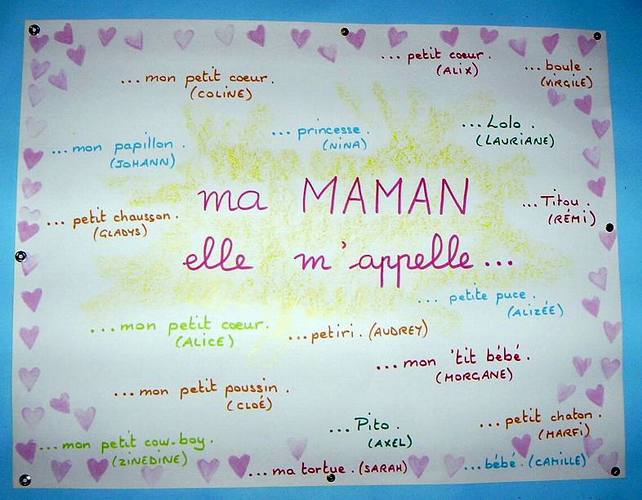 ... petit cœur.
(ALIX)
... boule.
(VIRGILE)
... mon petit cœur.
(COLINE)
... mon papillon.
(JOHANN)
... princesse.
(NINA)
... Lolo.
(LAURIANE)
ma MAMAN
... petit chausson.
(GLADYS)
... Titou.
(RÉMI)
elle m'appelle...
... petite puce.
(ALIZÉE)
... mon petit cœur.
(ALICE)
... petiri. (AUDREY)
... mon 'tit bébé.
(MORGANE)
... mon petit poussin.
(CLOÉ)
... Pito.
(AXEL)
... petit chaton.
(MARFI)
... mon petit cow-boy.
(ZINEDINE)
... ma tortue. (SARAH)
... bébé. (CAMILLE)